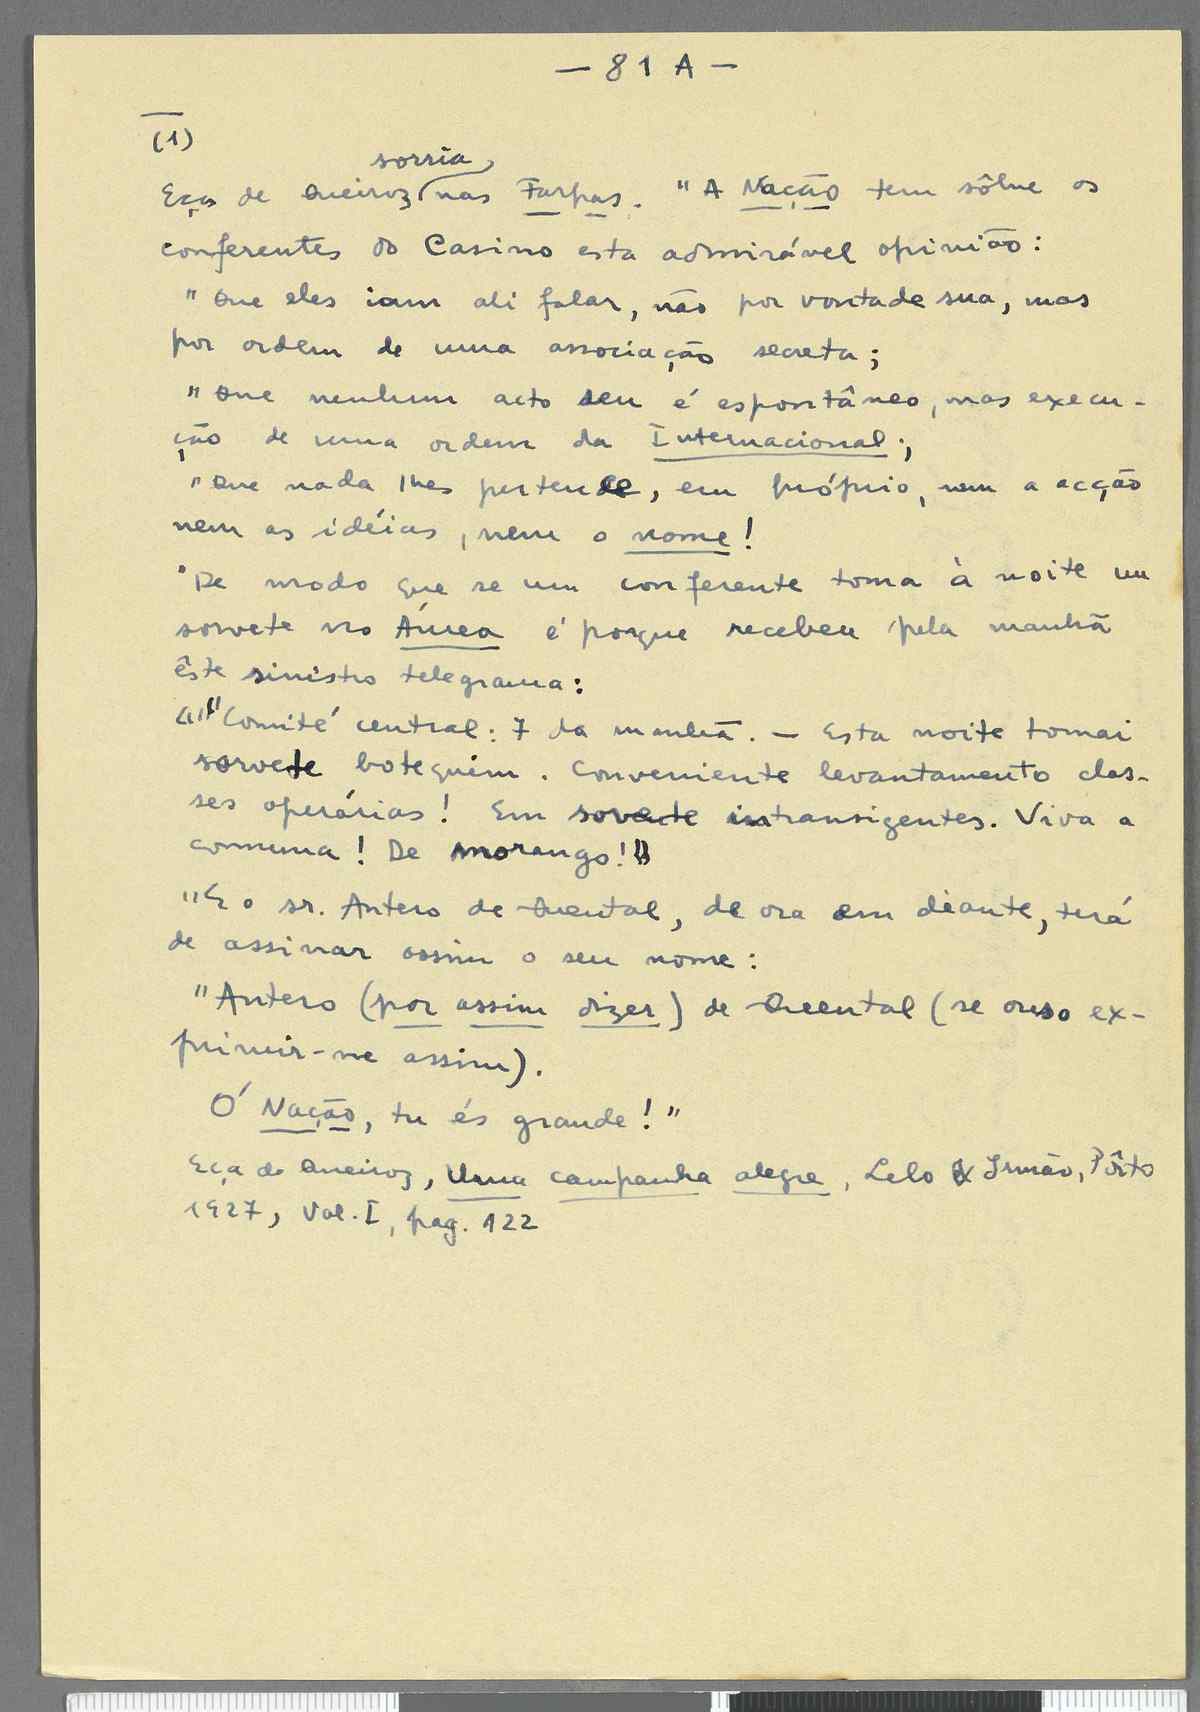 — 81 A —
(1)
sorria
Eça de Queiroz nas Farpas. "A Nação tem sôbre os
conferentes do Casino esta admirável opinião:
"Que eles iam ali falar, não por vontade sua, mas
por ordem de uma associação secreta;
"Que nenhum acto seu é espontâneo, mas execu-
ção de uma ordem da Internacional;
"Que nada lhes pertence, em próprio, nem a acção
nem as idéias, nem o nome!
"De modo que se um conferente toma à noite um
sorvete no Áurea é porque recebeu pela manhã
êste sinistro telegrama:
"""Comité central: 7 da manhã. — Esta noite tomai
sorvete botequim. Conveniente levantamento clas-
ses operárias! Em sovete intransigentes. Viva a
comuna! De morango!"
"E o sr. Antero de Quental, de ora em diante, terá
de assinar assim o seu nome:
"Antero (por assim dizer) de Quental (se ouso ex-
primir-me assim).
Ó Nação, tu és grande!"
Eça de Queiroz, Uma campanha alegre, Lelo & Irmão, Pôrto
1927, Vol. I, pag. 122